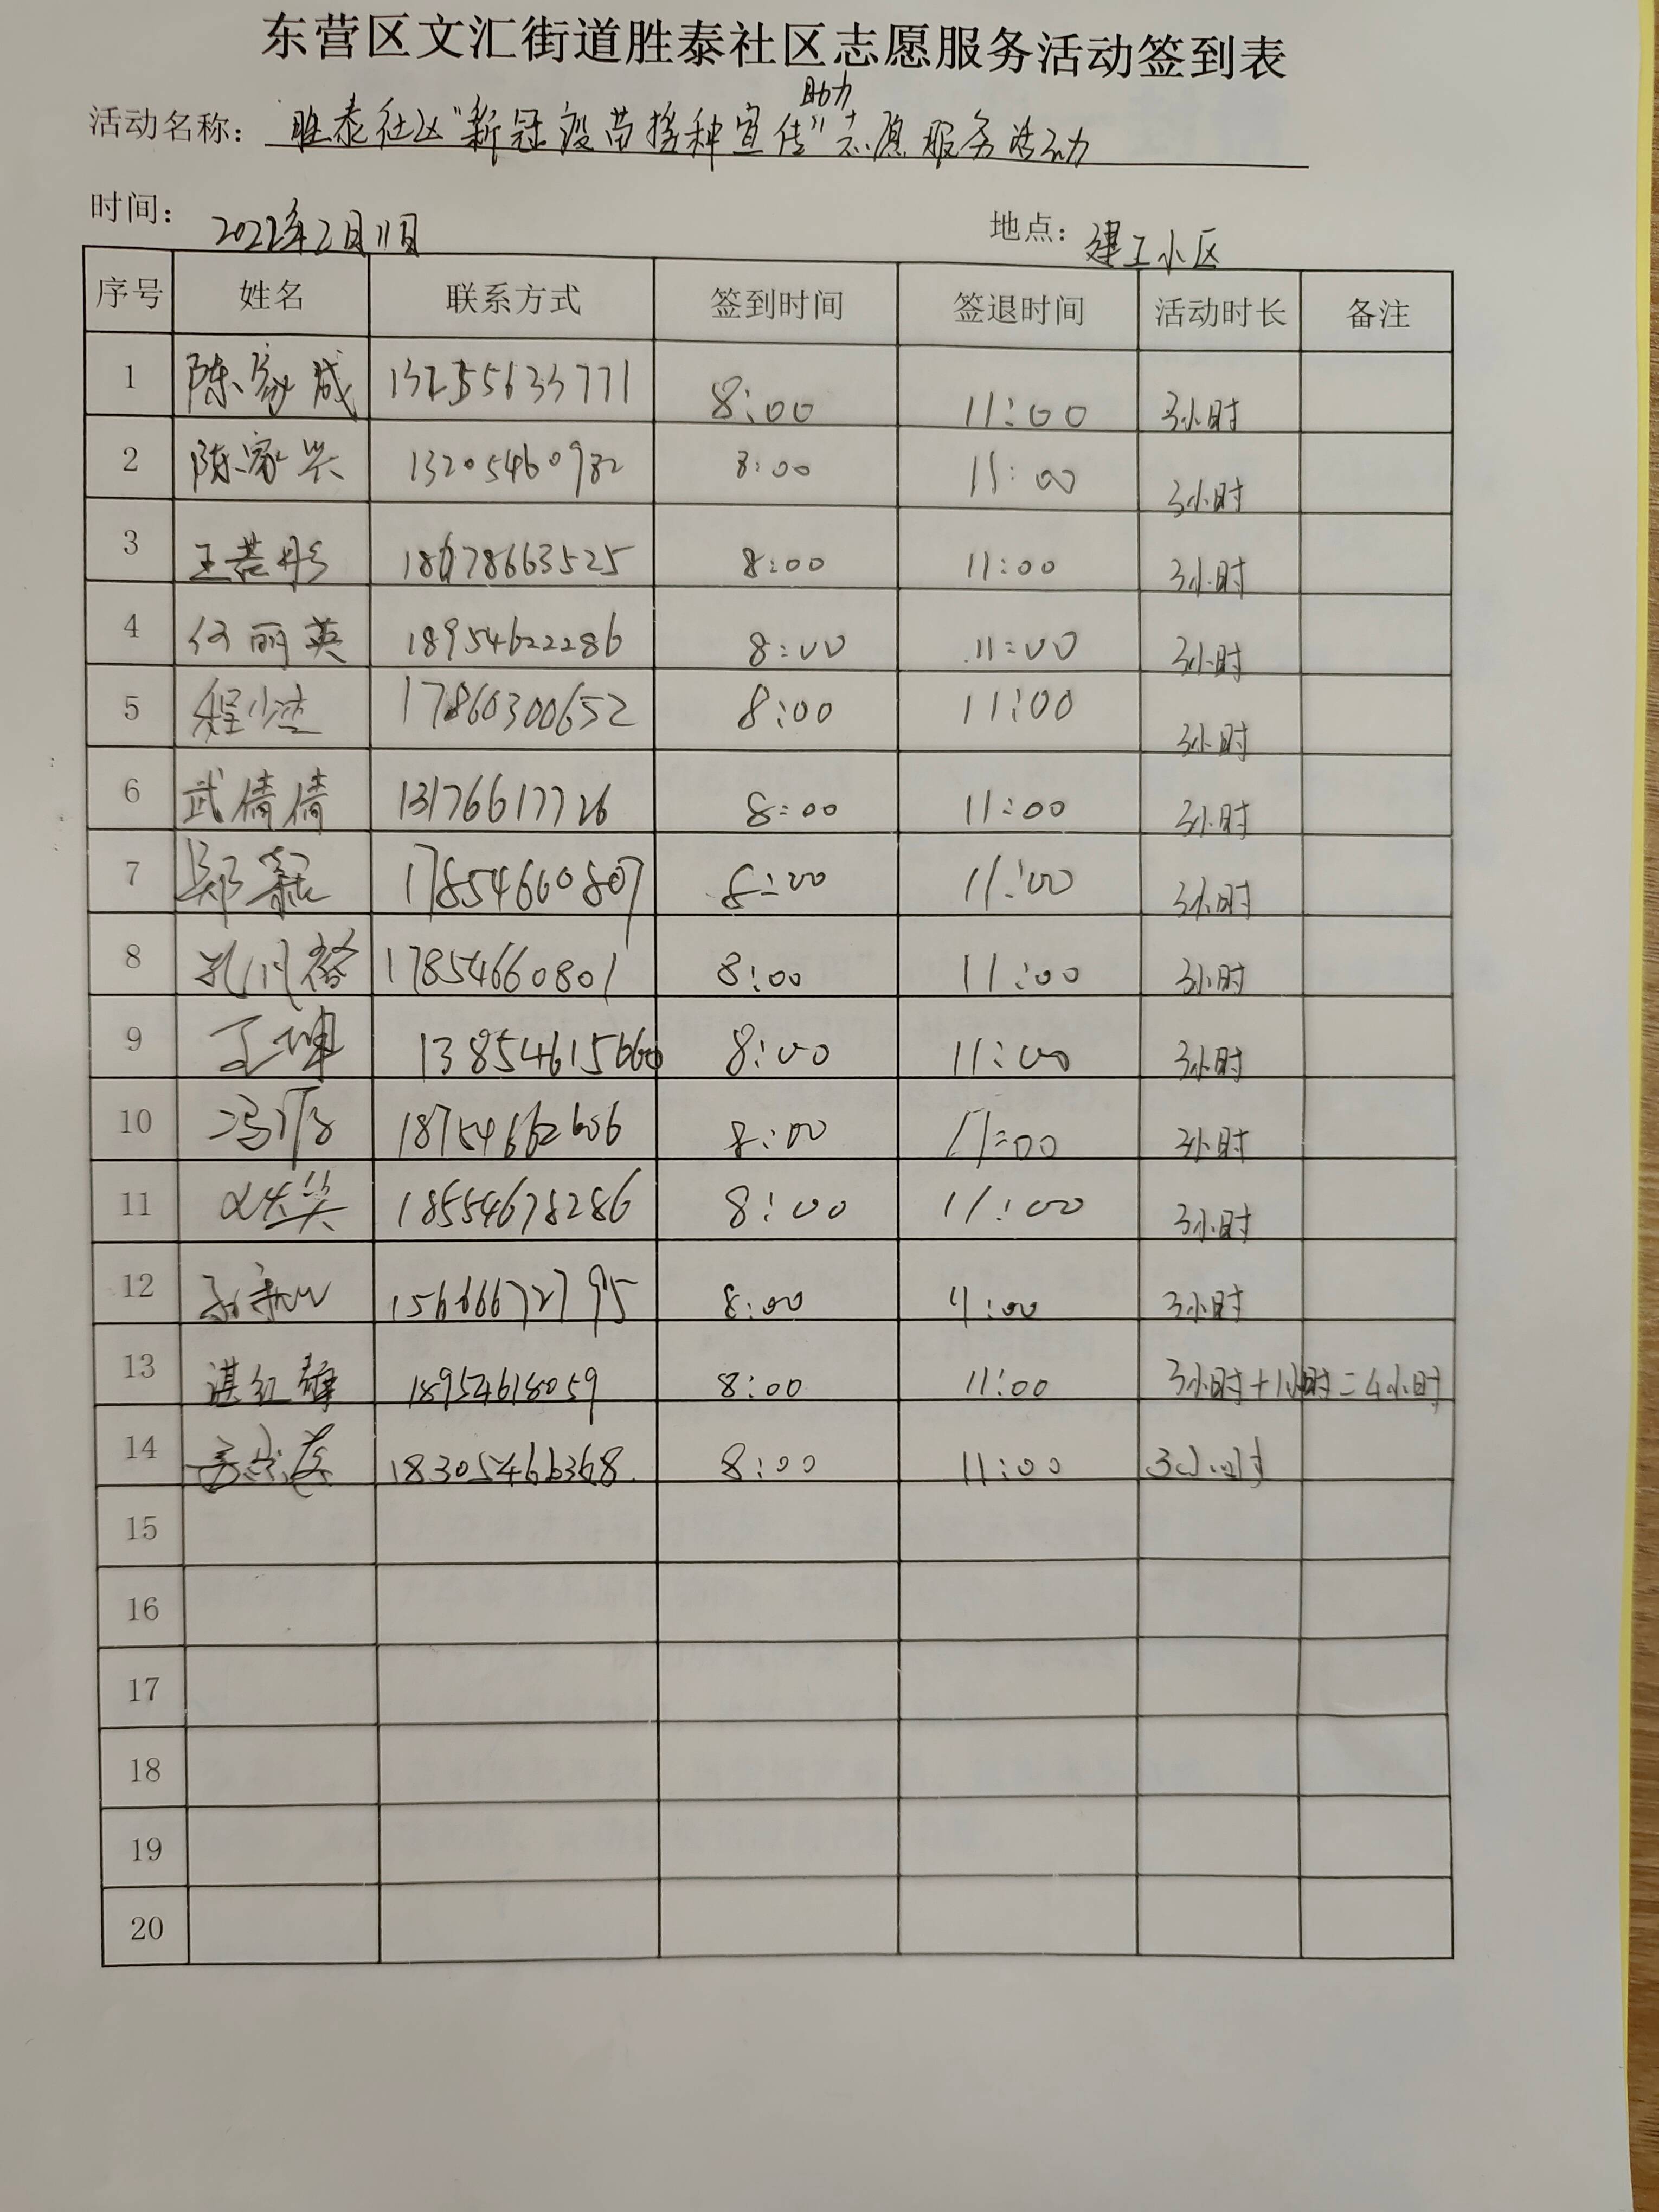 东营区文汇街道胜泰社区志愿服务活动签到表
助力
活动名称: 胜泰社区"新冠疫苗接种宣传"志愿服务活动
时间: 2022年2月11日 地点: 建工小区
序号 姓名 联系方式 签到时间 签退时间 活动时长 备注
1 陈家成 13255633771 8:00 11:00 3小时
2 陈家兴 13205460982 8:00 11:00 3小时
3 王若彤 18678663525 8:00 11:00 3小时
4 何丽英 18954622286 8:00 11:00 3小时
5 程小杰 17860300652 8:00 11:00 3小时
6 武倩倩 13176617726 8:00 11:00 3小时
7 郑 17854660807 8:00 11:00 3小时
8 孔 17854660801 8:00 11:00 3小时
9 王坤 13854615660 8:00 11:00 3小时
10 冯 18754662606 8:00 11:00 3小时
11 18554678286 8:00 11:00 3小时
12 15666672795 8:00 11:00 3小时
13 谌红雄 18954618059 8:00 11:00 3小时+1小时=4小时
14 18305466368 8:00 11:00 3小时
15
16
17
18
19
20